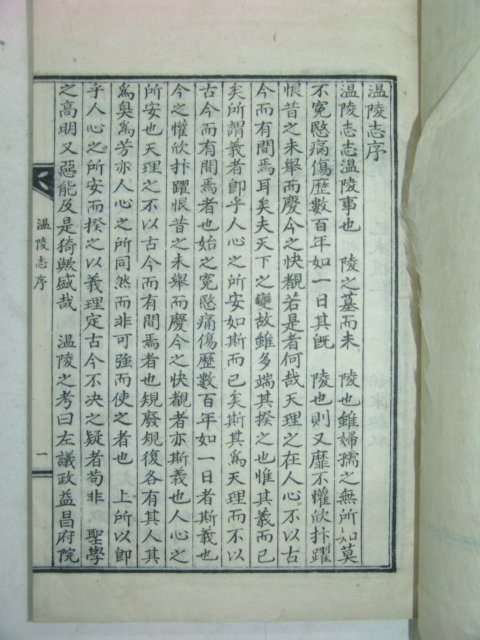 温陵志序
温陵志志温陵事也 陵之墓而未 陵也雖婦孺之無所如莫
不寃愍痛傷歷數百年如一日其旣 陵也則又靡不懽欣抃躍
恨昔之未舉而慶今之快覩若是者何哉天理之在人心不以古
今而有間焉耳矣夫天下之變故雖多端其揆之也惟其義而已
矣所謂義者卽乎人心之所安如斯而已矣斯其爲天理而不以
古今而有間焉者也始之寃愍痛傷歷數百年如一日者斯義也
今之懽欣抃躍恨昔之未舉而慶今之快覩者亦斯義也人心之
所安也天理之不以古今而有間焉者也規廢規復各有其人其
爲臭爲芳亦人心之所同然而非可強而使之者也 上所以卽
乎人心之所安而揆之以義理定古今不決之疑者苟非 聖學
之高明又惡能及是猗歟盛哉 温陵之考曰左議政益昌府院
温陵志序
一